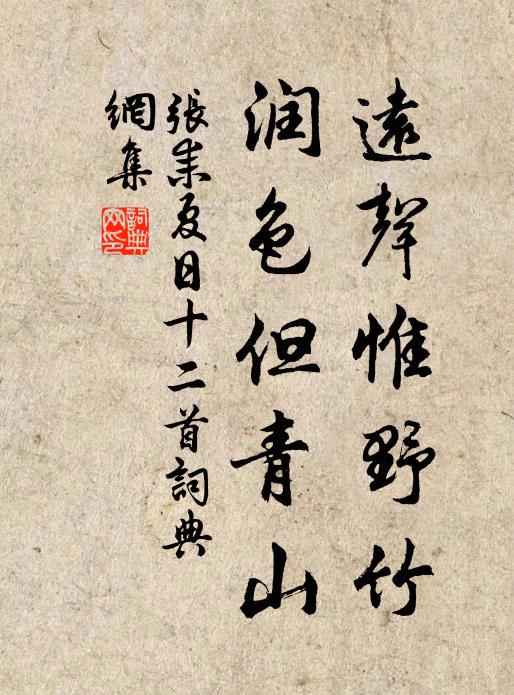 遠聲惟野竹
润色但青山
張耒夏日十二首詞典
網集
詞典
网印